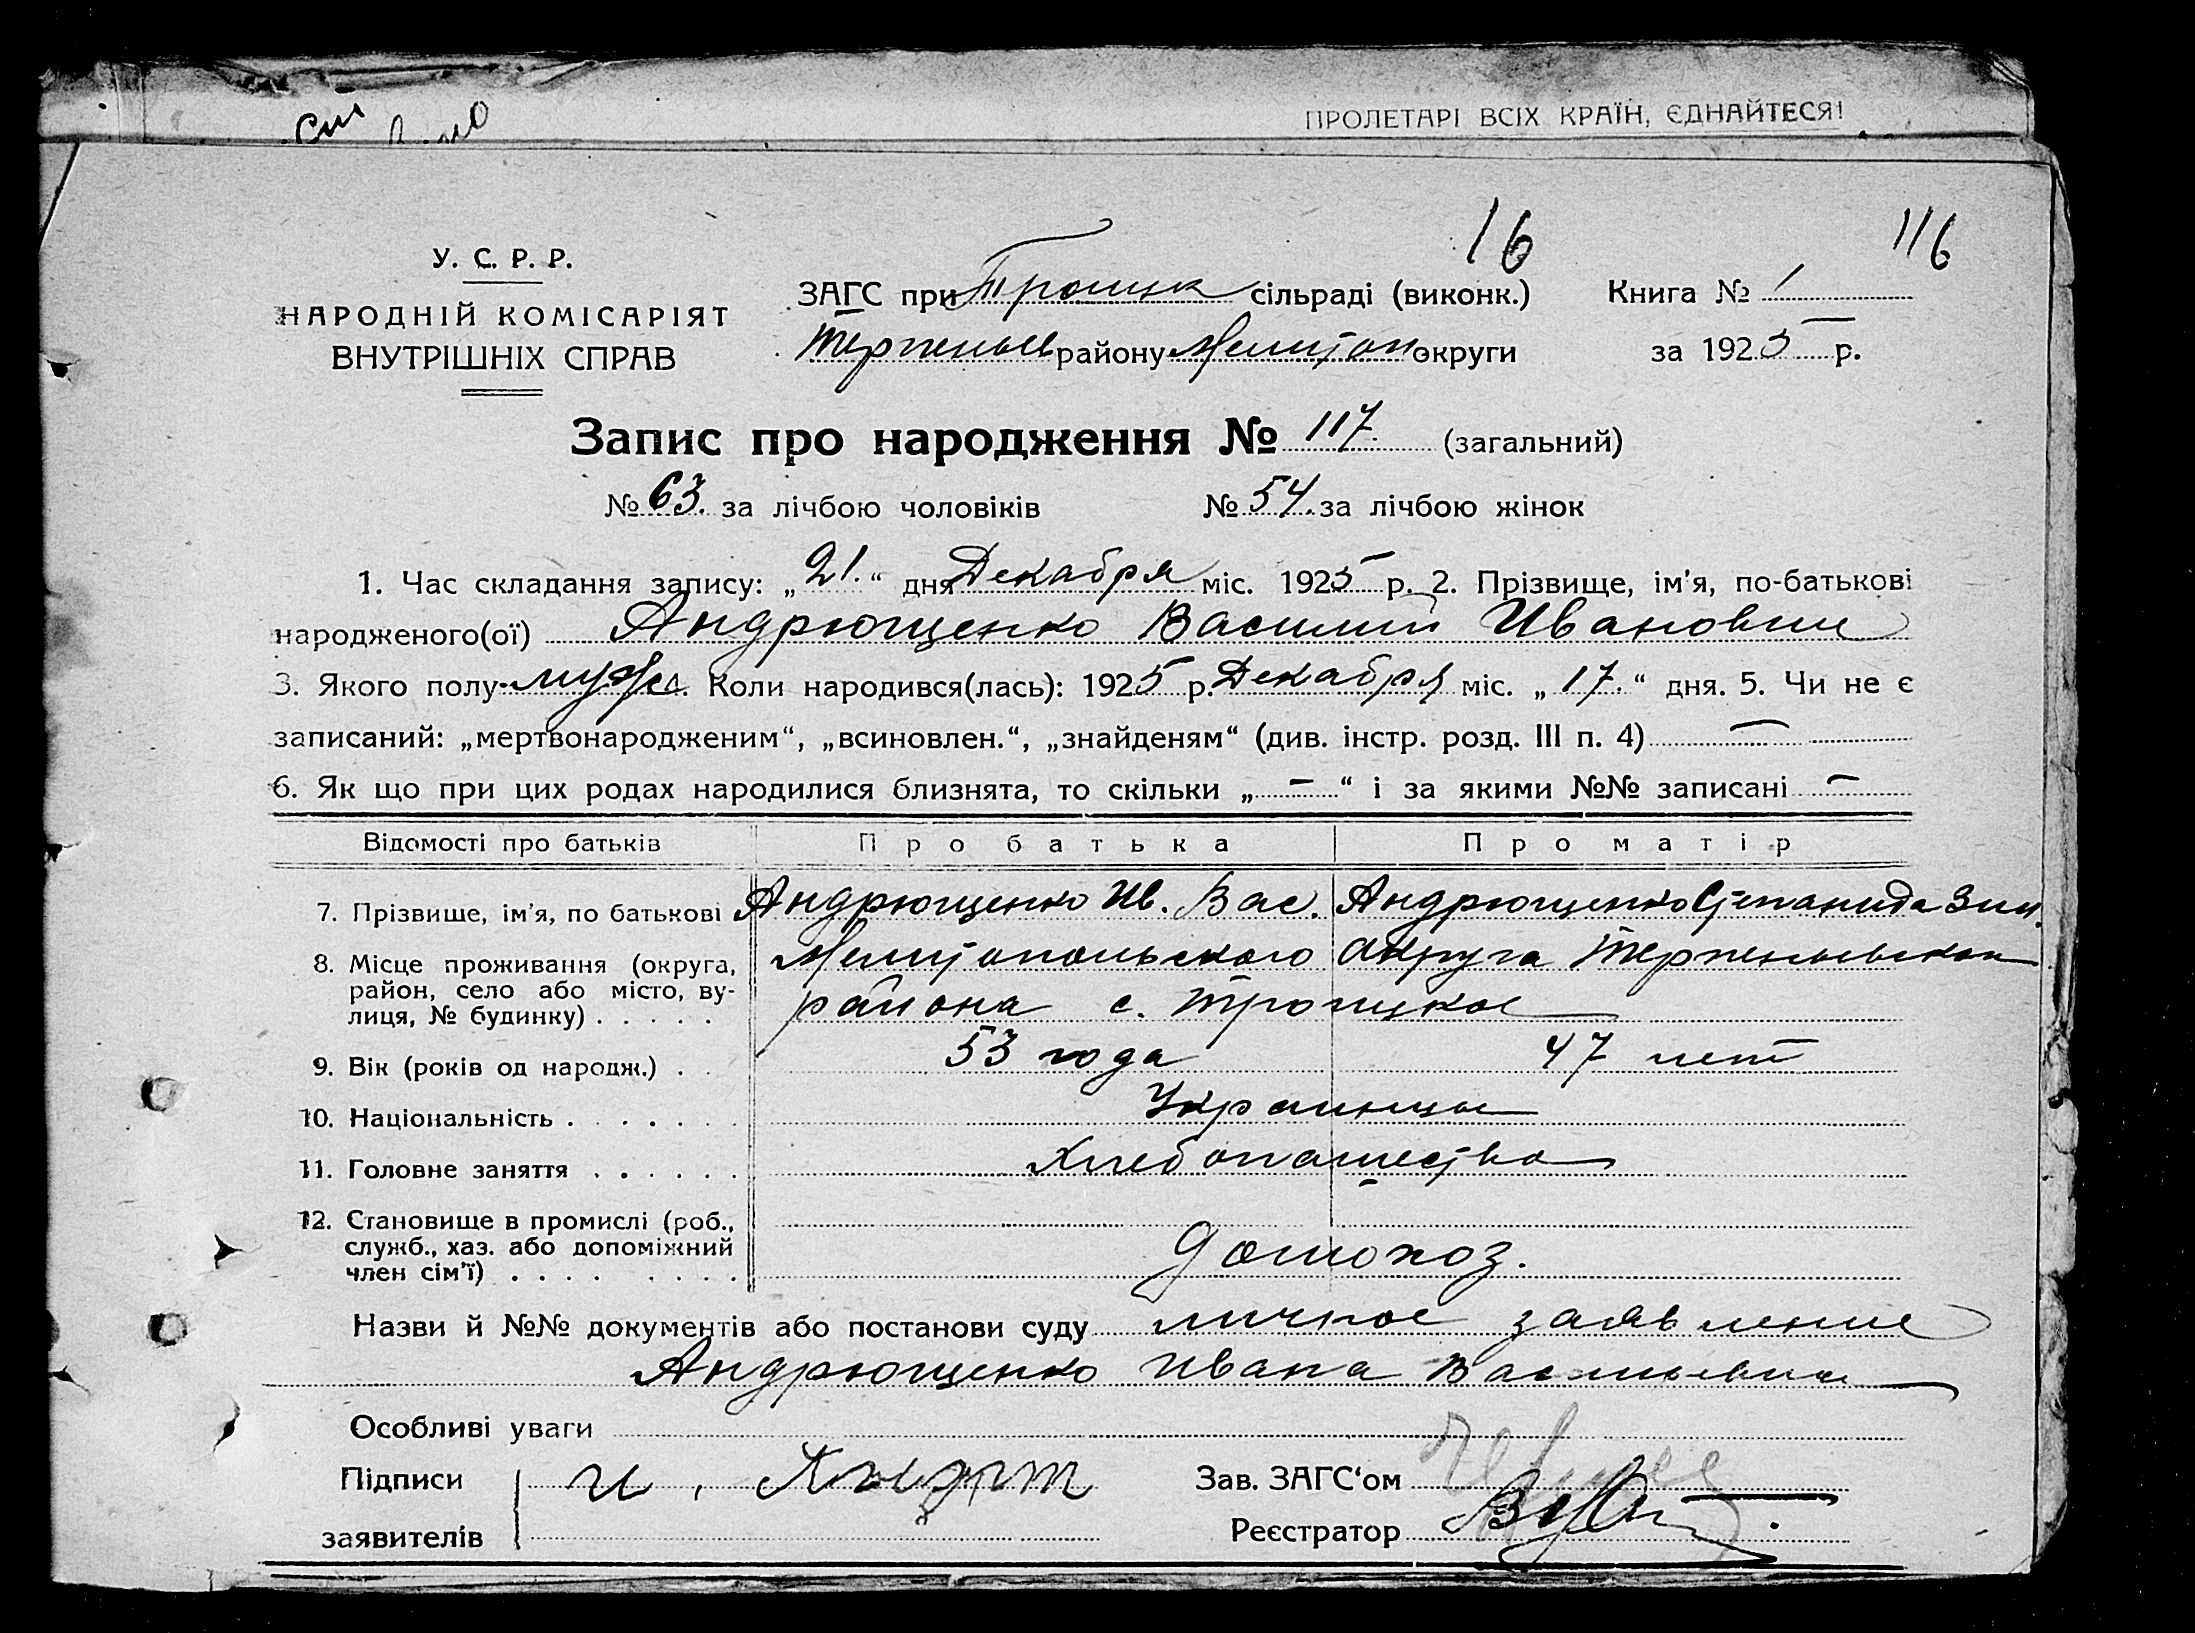 ПРОЛЕТАРІ ВСІХ КРАЇН, ЄДНАЙТЕСЯ!
16
116
У. С. Р. Р.
НАРОДНІЙ КОМІСАРІЯТ
ВНУТРІШНІХ СПРАВ
ЗАГС при Троицк сільраді (виконк.) Книга № 1
Терпеньев району Мелитоп округи за 1925 р.
Запис про народження № 117. (загальний)
№ 63. за лічбою чоловіків № 54. за лічбою жінок
1. Час складання запису: „ 21. “ дня Декабря міс. 1925 р. 2. Прізвище, ім'я, по-батькові
народженого(ої) Андрющенко Василий Иванович
3. Якого полу мужс. Коли народився(лась): 1925 р. Декабря міс. „ 17. “ дня. 5. Чи не є
записаний: „мертвонародженим“, „всиновлен.“, „знайденям“ (див. інстр. розд. III п. 4) —
6. Як що при цих родах народилися близнята, то скільки „ — “ і за якими №№ записані —
Відомості про батьків Про батька Про матір
7. Прізвище, ім'я, по батькові Андрющенко Ив. Вас. Андрющенко Степанида Зин.
8. Місце проживання (округа, район, село або місто, вулиця, № будинку) . . . . . Мелитопольского округа Терпеньевскон
района с. Троицкое
9. Вік (років од народж.) . . 53 года 47 лет
10. Національність . . . . . . . Украинцы
11. Головне заняття . . . . . . Хлебопашество
12. Становище в промислі (роб.,
служб., хаз. або допоміжний
член сім'ї) . . . . . . . . домохоз.
Назви й №№ документів або постанови суду личное заявление
Андрющенко Ивана Васильевича
Особливі уваги
Підписи И. Зав. ЗАГС‘ом
заявителів Реєстратор